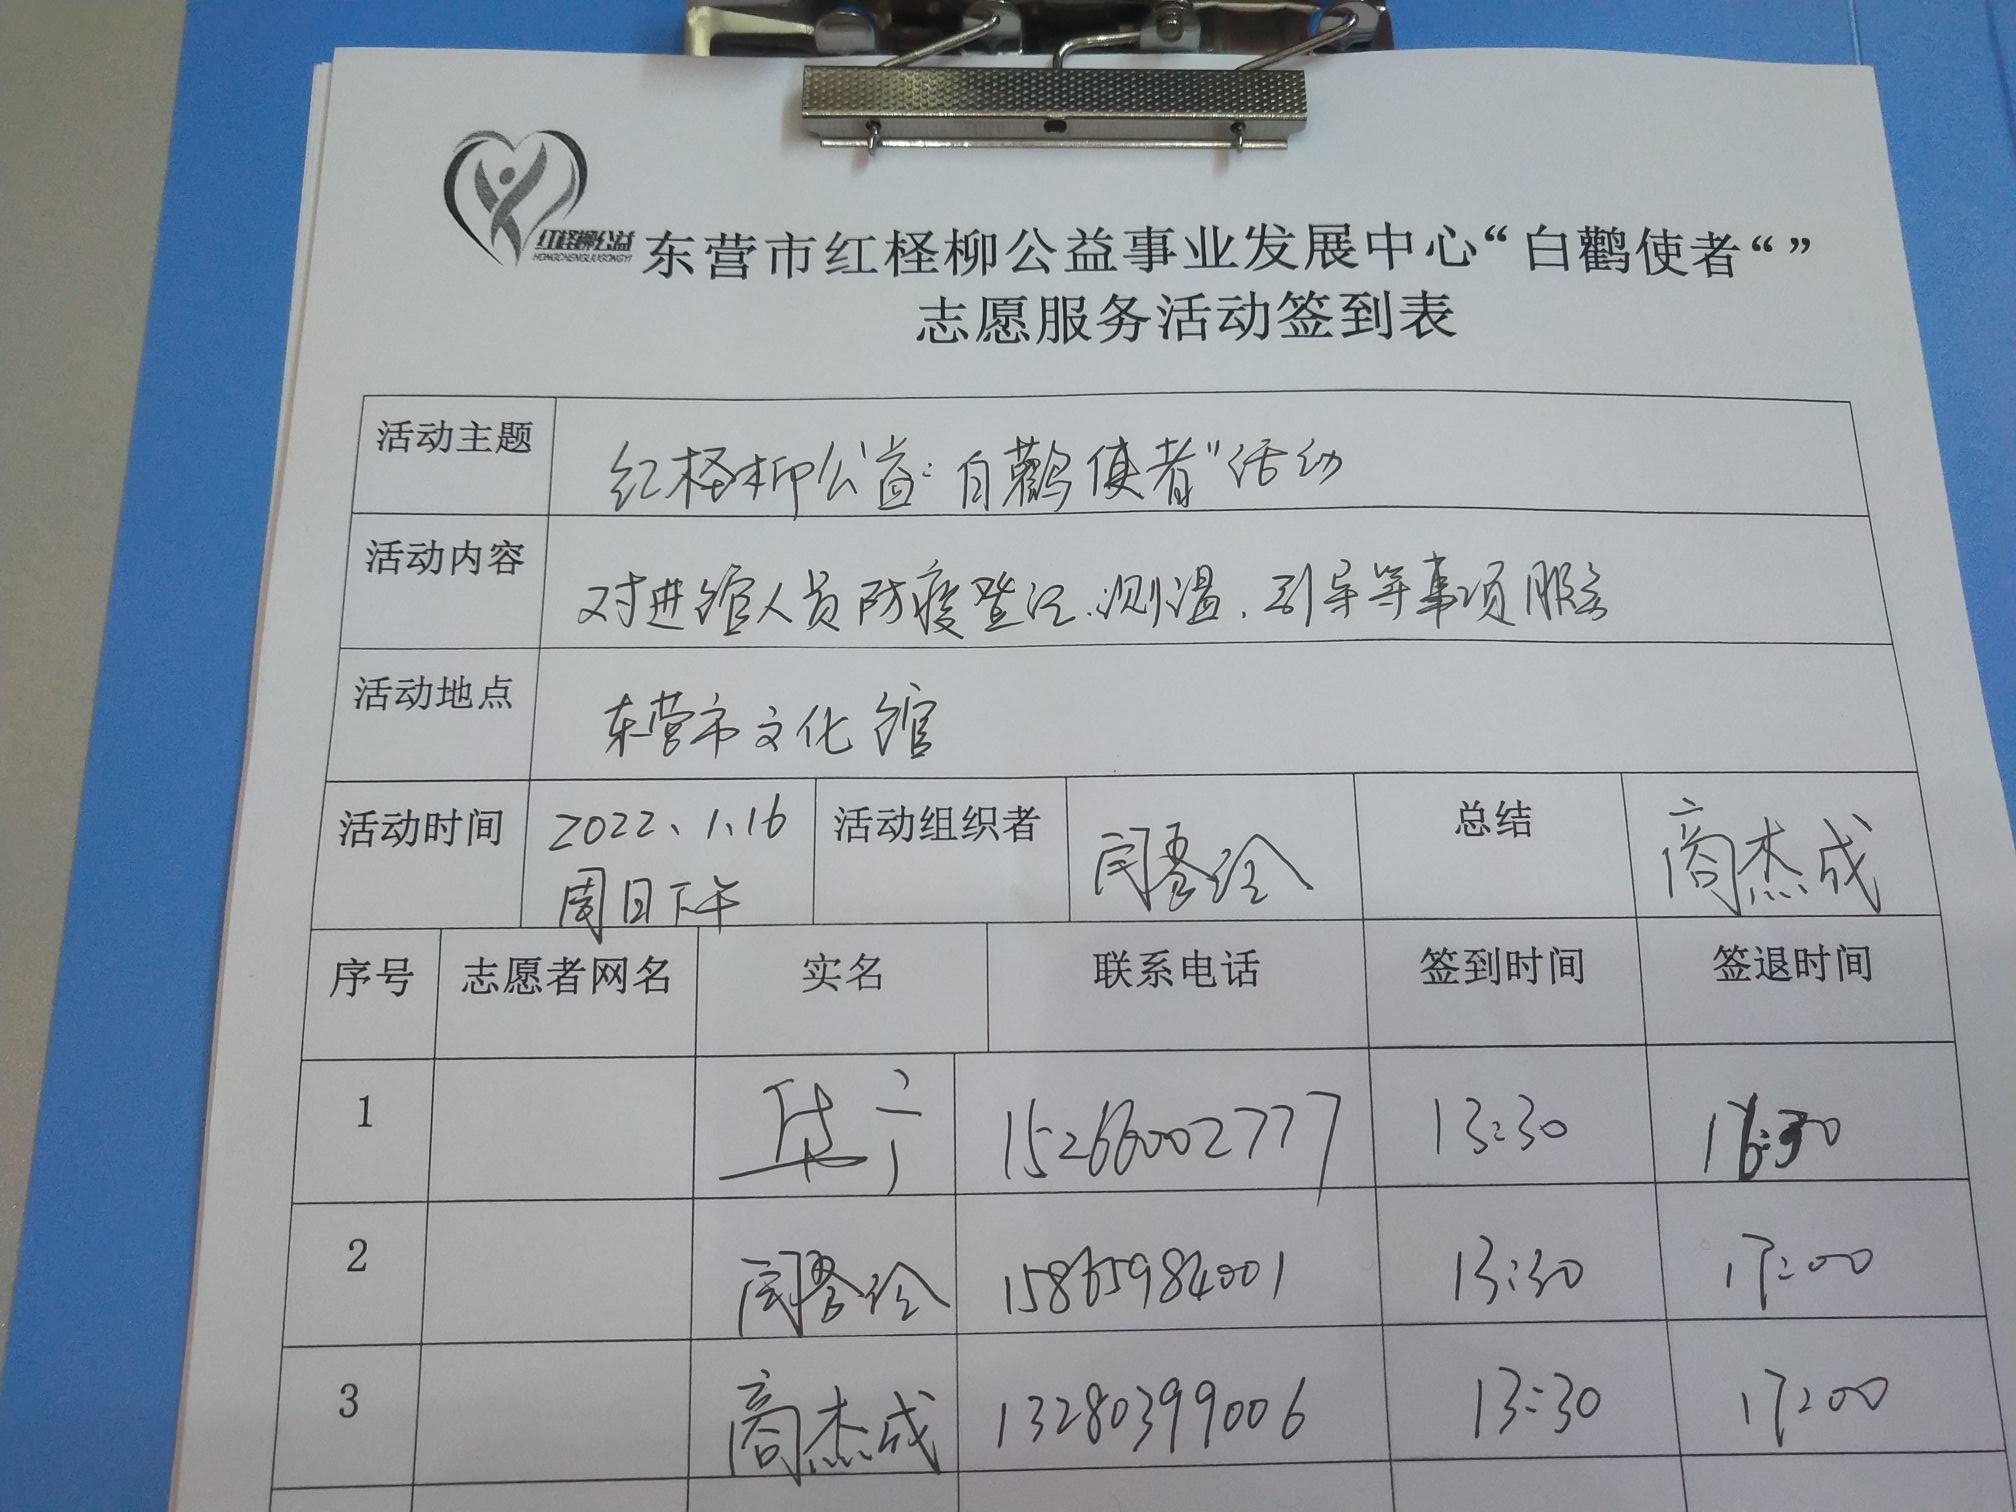 红柽柳公益
HONGCHENGLIUGONGYI
东营市红柽柳公益事业发展中心“白鹳使者“”
志愿服务活动签到表
活动主题 红柽柳公益“白鹳使者”活动
活动内容 对进馆人员防疫登记、测温、引导等事项服务
活动地点 东营市文化馆
活动时间 2022、1、16 活动组织者 总结 商杰成
周日下午
序号 志愿者网名 实名 联系电话 签到时间 签退时间
1 15266002777 13:30 16:30
2 15865984001 13:30 17:00
3 商杰成 13280399006 13:30 17:00